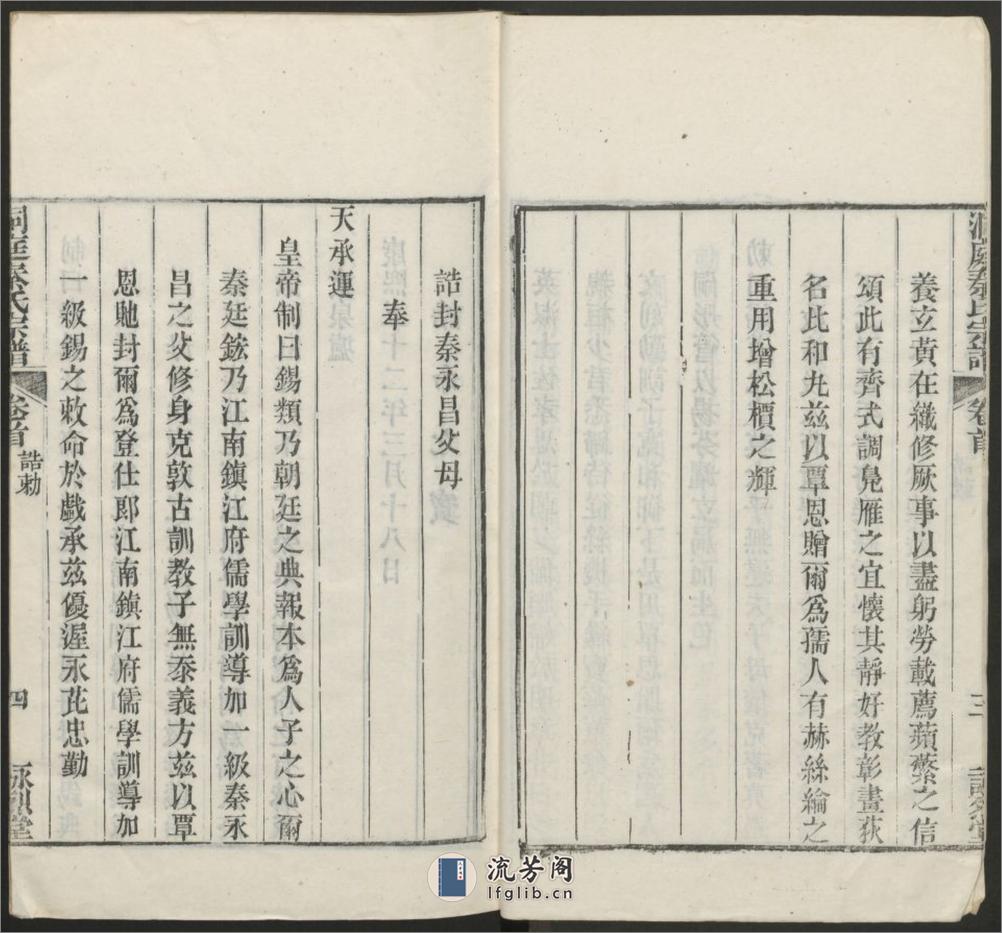 洞庭秦氏宗譜
卷首
三
養立黃在纎修厥事以盡躬勞載薦蘋蘩之信
頌此有齊式調鳧雁之宜懷其靜好教彰畫荻
名比和丸兹以覃恩贈爾爲孺人有赫絲綸之
重用增松檟之輝
誥封秦永昌父母
奉
天承運
皇帝制曰錫類乃朝廷之典報本爲人子之心爾
秦廷鋐乃江南鎮江府儒學訓導加一級秦永
昌之父修身克敦古訓教子無忝義方兹以覃
恩貤封爾爲登仕郎江南鎮江府儒學訓導加
一級錫之敕命於戲承兹優渥永茂忠勤
洞庭秦氏宗譜
卷首
誥勅
四
詠烈堂
流芳阁
lfglib.cn